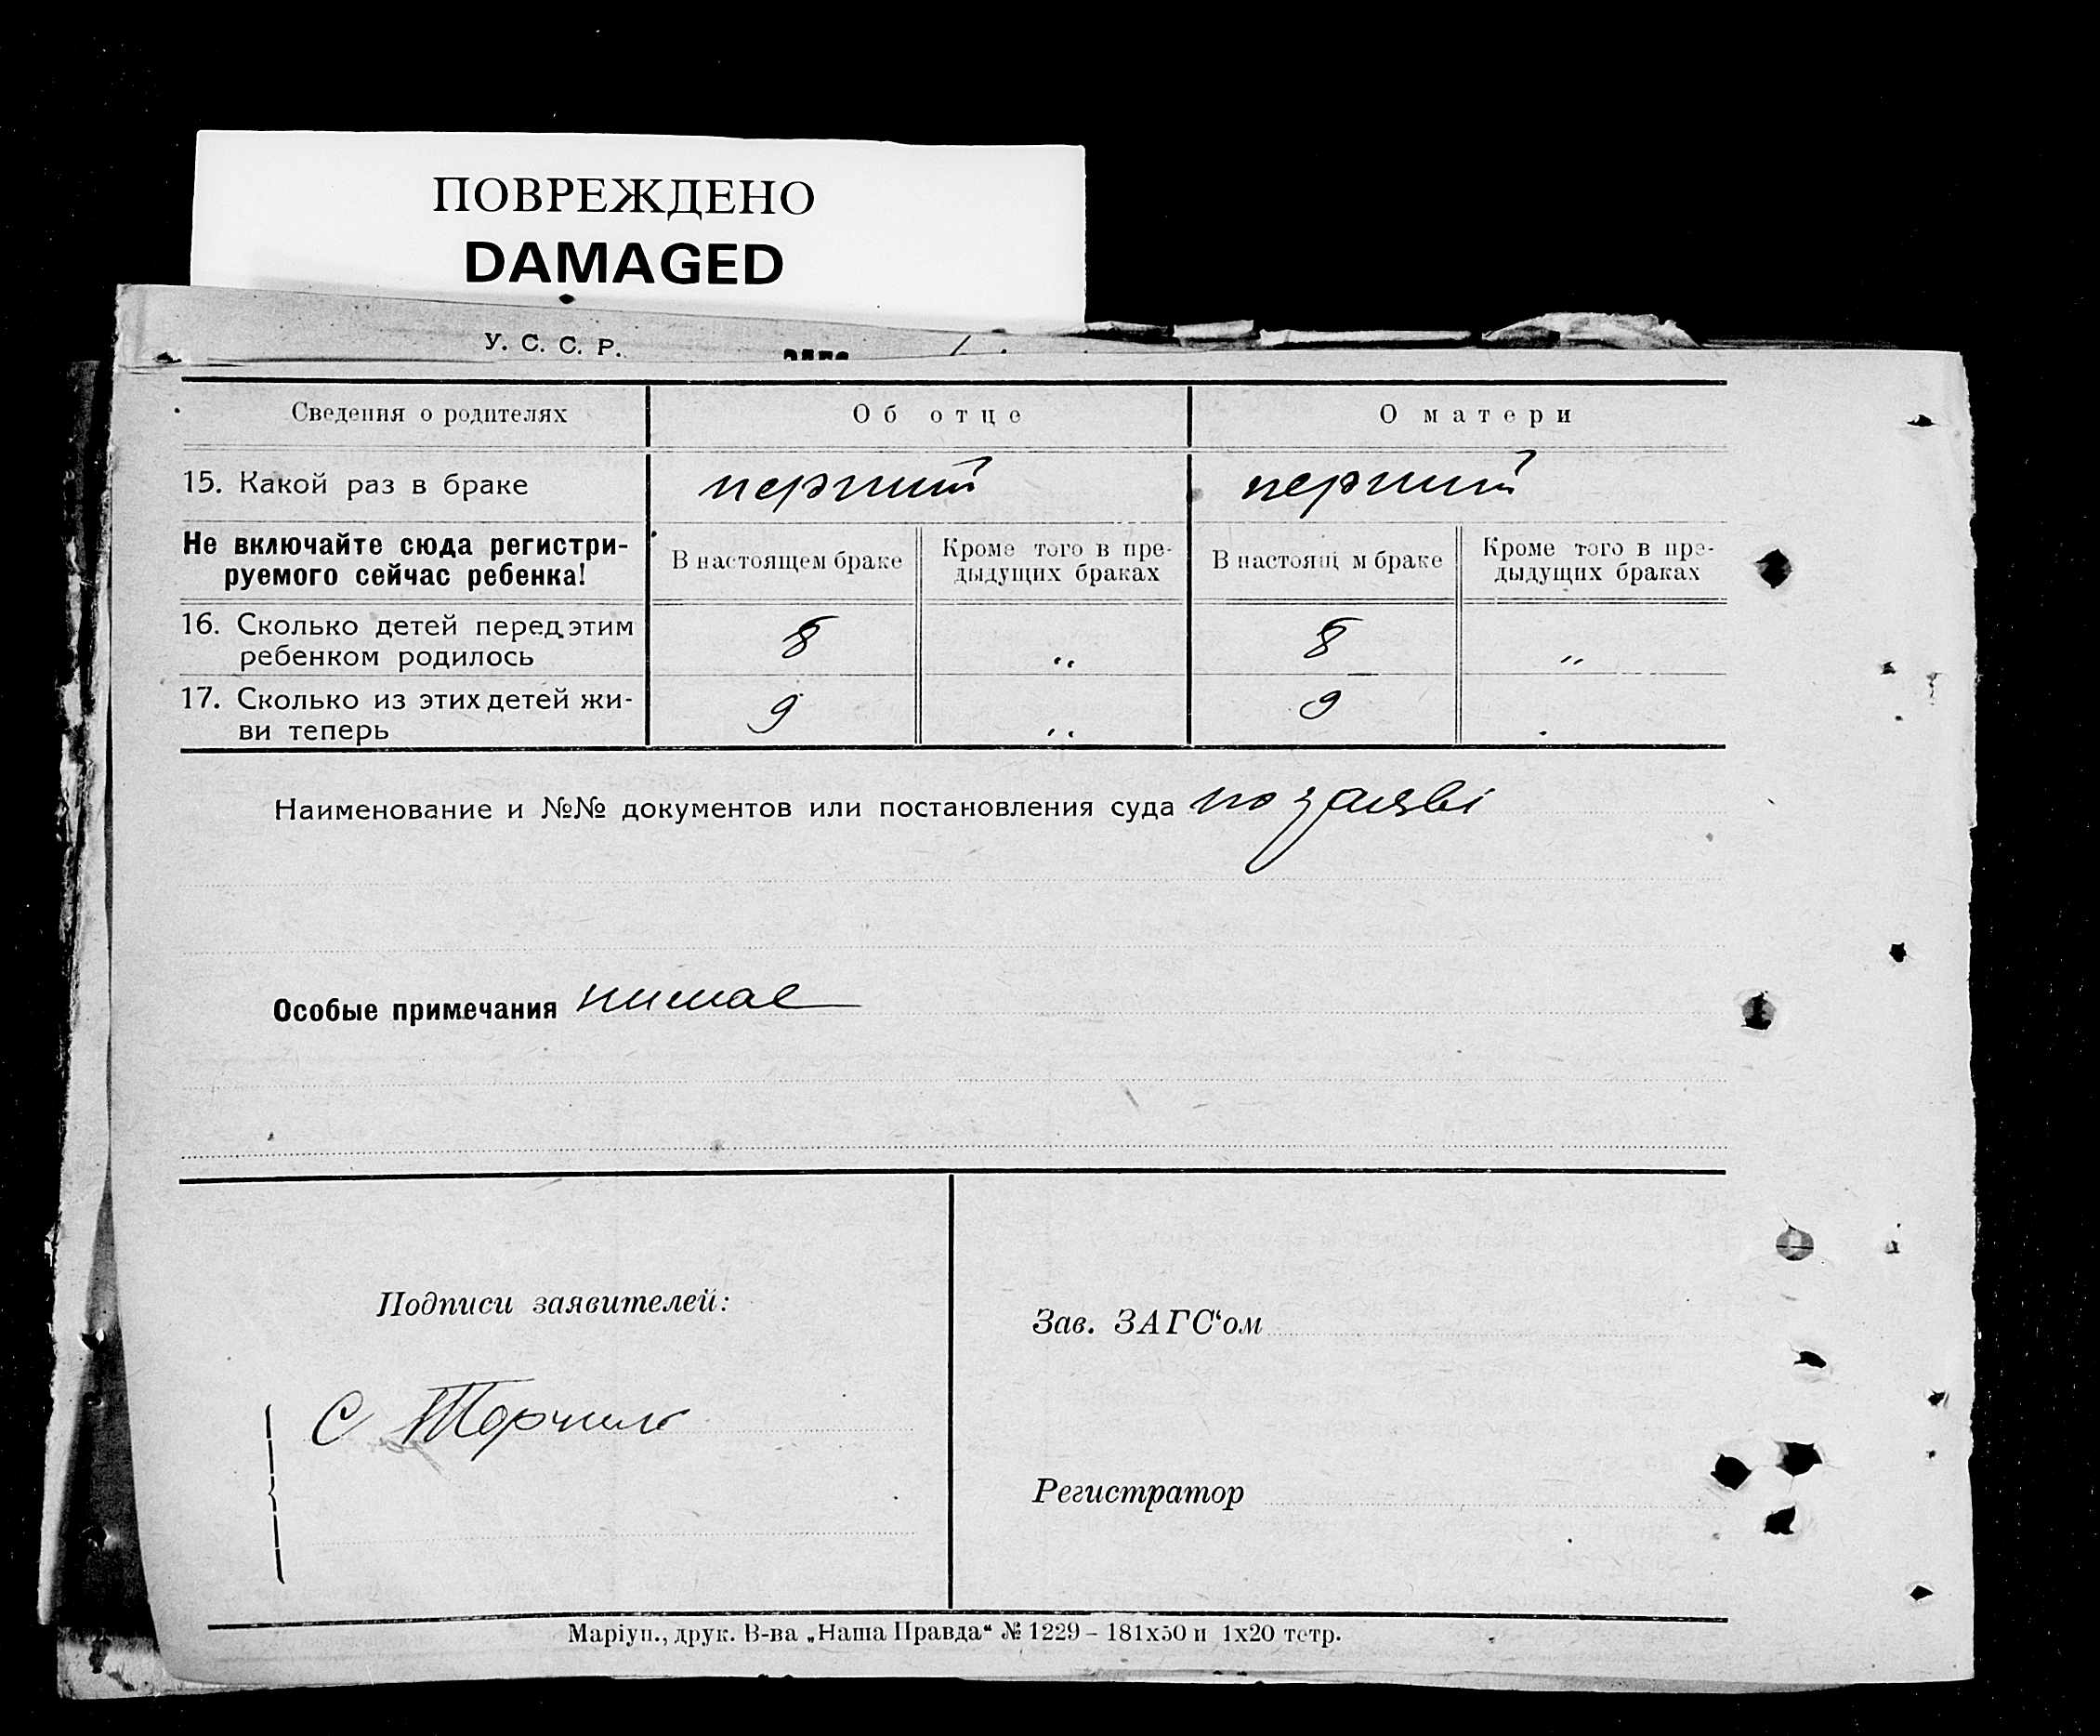 ПОВРЕЖДЕНО
DAMAGED
У. С. С. Р.
Сведения о родителях Об отце О матери
15. Какой раз в браке перший перший
Не включайте сюда регистри-
руемого сейчас ребенка!
В настоящем браке
Кроме того в пре-
дыдущих браках
В настоящ м браке
Кроме того в пре-
дыдущих браках
16. Сколько детей перед этим
ребенком родилось 8 „ 8 „
17. Сколько из этих детей жи-
ви теперь 9 „ 9
Наименование и №№ документов или постановления суда по заяві
Особые примечания нимае
Подписи заявителей:
С
Зав. ЗАГС‘ом
Регистратор
Маріуп., друк. В-ва „Наша Правда“ № 1229 – 181х50 и 1х20 тетр.